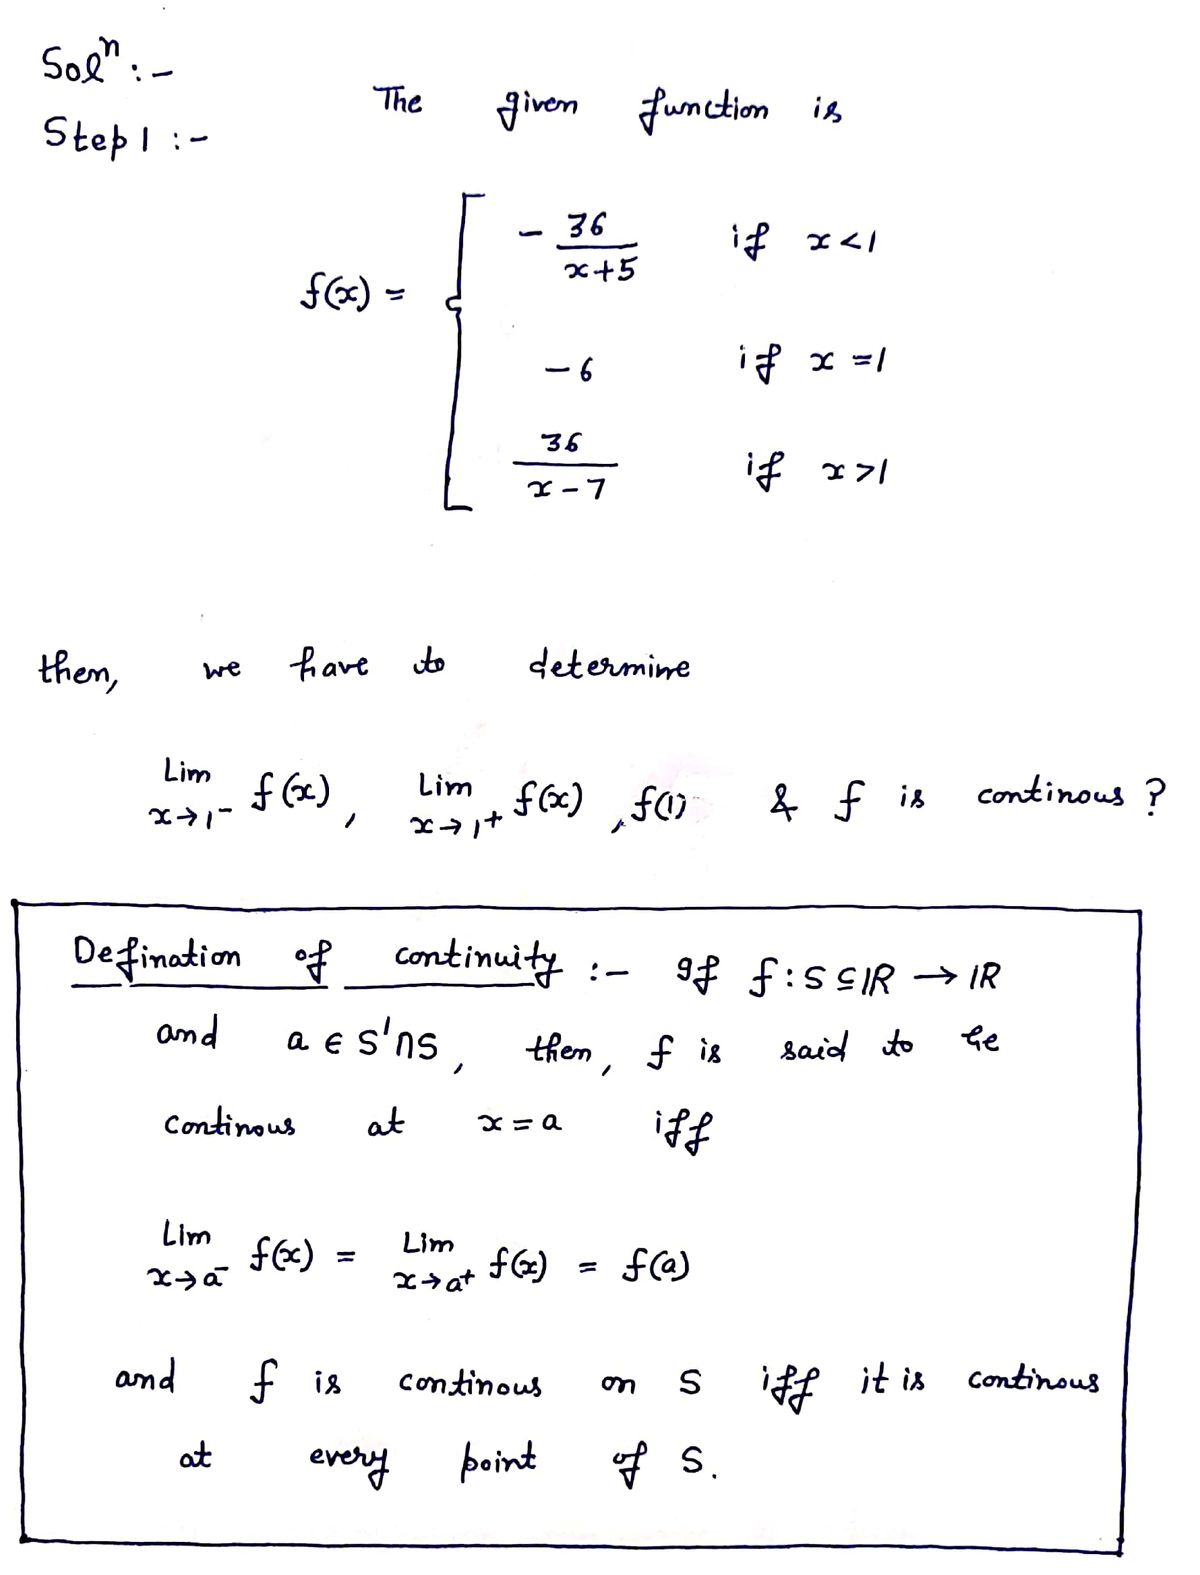 Solⁿ :-
Step 1 :-
The given function is
f(x) = { - 36/(x+5) if x<1
-6 if x =1
36/(x-7) if x>1
then, we have to determine
Lim x→1⁻ f(x), Lim x→1⁺ f(x), f(1) & f is continous ?
Defination of continuity :- If f : S ⊆ IR → IR
and a ∈ S'∩S, then, f is said to be
continous at x = a iff
Lim x→a⁻ f(x) = Lim x→a⁺ f(x) = f(a)
and f is continous on S iff it is continous
at every point of S.